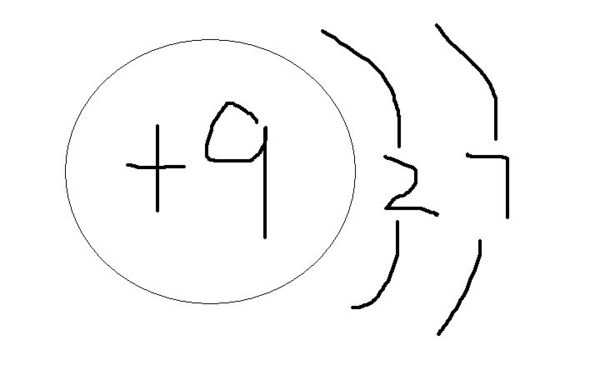 +9 2 7